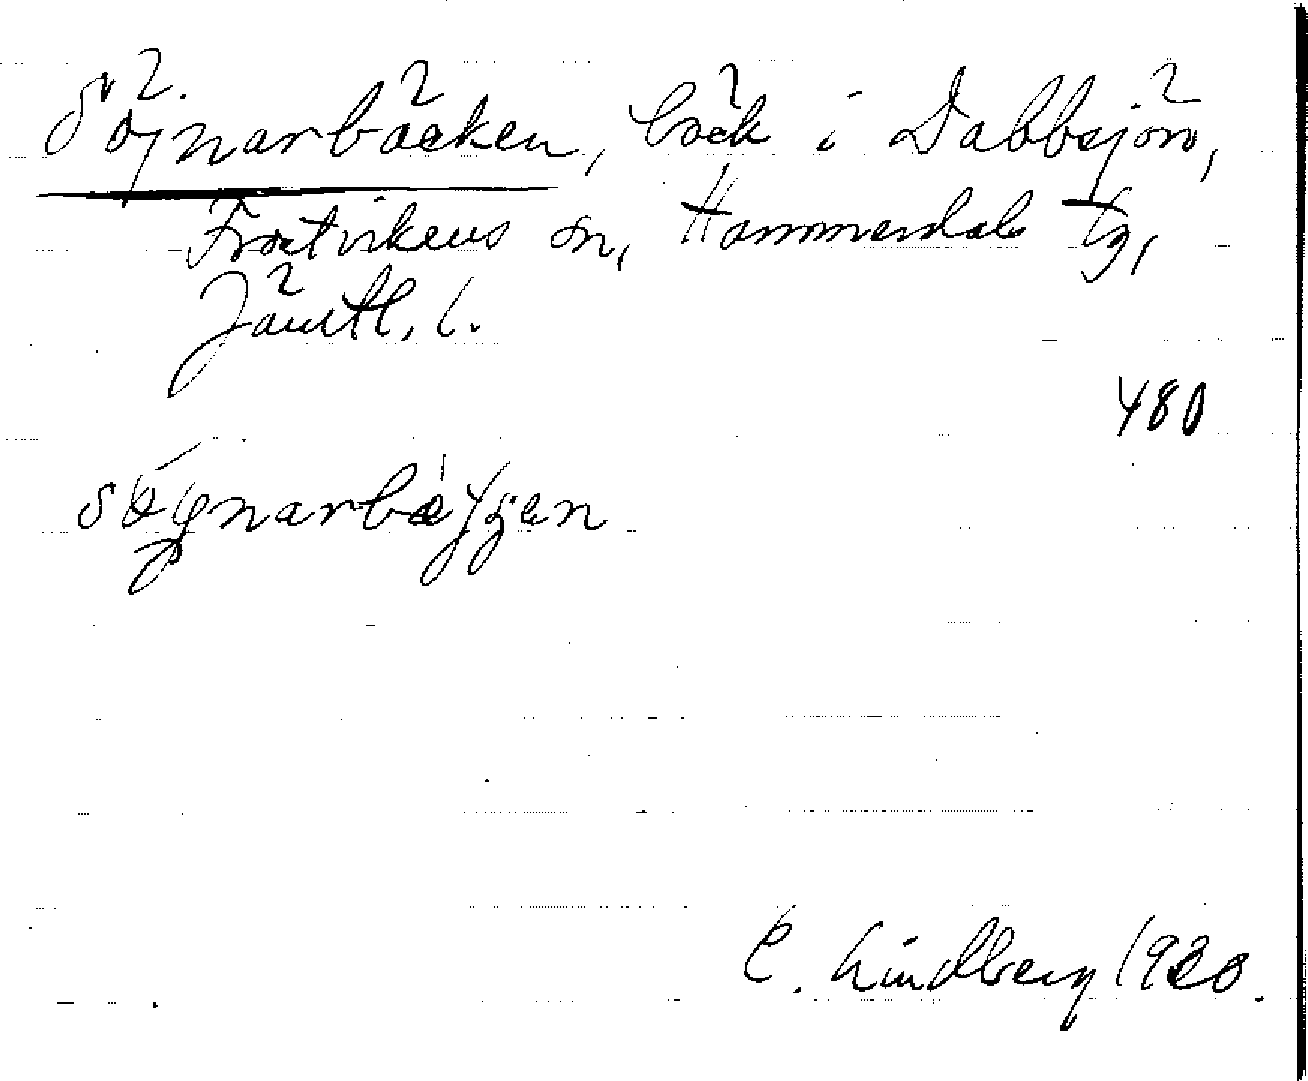 Söjnarbäcken, bäck i Dabbsjön,
Frostvikens sn, Hammerdals tg,
Jämtl. l.
480
E. Lindberg 1930.